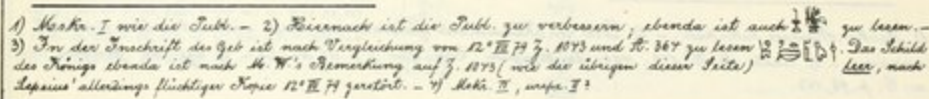 1) MsKr. I wie die Publ. – 2) Hiernach ist die Publ. zu verbessern; ebenda ist auch zu lesen. –
3) In der Inschrift des Geb ist nach Vergleichung von 12° VII 79 Z. 1073 und A. 367 zu lesen. Das Schild
des Königs ebenda ist nach M. W's Bemerkung auf Z. 1073 (wie die übrigen dieser Seite) leer, nach
Lepsius' allerdings flüchtiger Kopie 12° VII 79 zerstört. – 4) MsKr. IV, urspr. V?